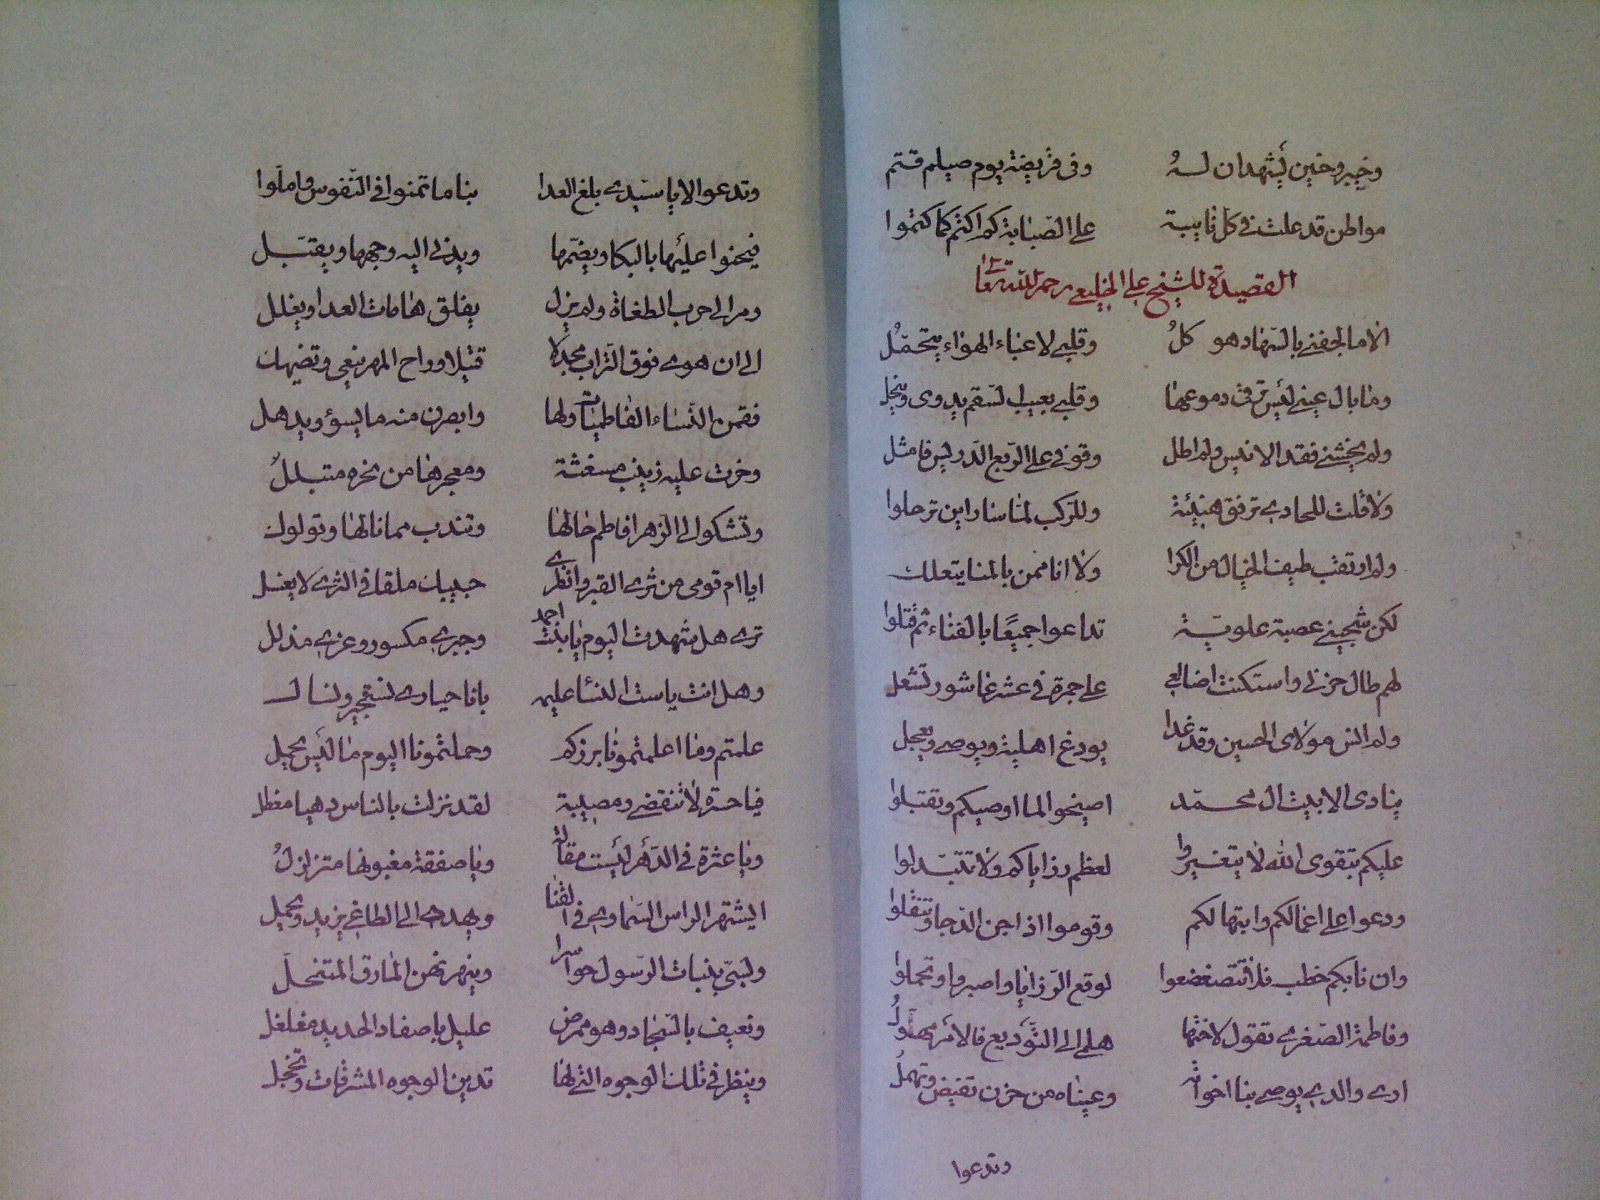 وخيبر وحنين يشهدان له وفي قريضة يوم صيلم قتم
مواطن قد علت في كل نايبة على الصبابة كم اكتم كما كتموا
القصيدة للشيخ علي الخليعي رحمه الله تعا
الاما لجفني بالسهاد موكلُ وقلبي لاعباء الهواء يتحمّلُ
وما بال عيني ليس ترقى دموعها وقلبي يعيب لسقم يدوى وينحل
ولم يخشني فقد الانيس ولم اطل وقوفي على الربع الدريس فامثل
ولا قلت للحادي ترفق هنيئة وللركب لما سار اين ترحلوا
ولم ارتقب طيف الخيال من الكرا ولا انا ممن بالمنا يتعلل
لكن شجيني عصبة علوية تداعوا جميعًا بالفناء ثم قتلوا
لهم طال حزني واستكنت اضالعي على جمرة في عشر عاشور تشعل
ولم انس مولاي الحسين وقد غدا يودع اهليه ويوصي ويعجل
ينادي الا بيت ال محمد اصيخوا لما اوصيكم وتقبلوا
عليكم بتقوى الله لا يتغيروا لعظم رزاياكم ولا تتبدلوا
ودعوا على اعمالكم وابتهالكم وقوموا اذا جن الدجا وتنفلوا
وان نابكم خطب فلا تتضعضعوا لوقع الرزايا واصبروا وتحملوا
وفاطمة الصغرى تقول لاختها هلمي الى التوديع فالامر مهولُ
ارى والدي يوصي بنا اخواته وعيناه من حزن تفيض وتهملُ
وتدعوا
وتدعوا الا يا سيدي بلغ العدا بنا ما تمنوا في النفوس واملوا
فيحنوا عليها بالبكا ويضمها ويدني اليه وجهها ويقبّل
ومر الى حرب الطغاة ولم يزل يفلق هامات العدا ويغلل
الى ان هوى فوق التراب مجدلا قتيلا وراح المهر ينعي وتضهل
فقمن النساء الفاطميات ولها وابصرن منه ما يسؤ ويدهل
وخرت عليه زينب مسغثة ومعجرها من نحره متبللُ
وتشكوا الى الزهرا فاطم خالها وتندب مما نالها وتولول
ايا ام قومي من ثرى القبر وانظري حبيبك ملقا في الثرى لا يغسل
ترى هل شهدت اليوم يا بنت احمد وجبري مكسور وعزي مذلل
وهل انت ياست النسا عليمه بانا حيارى نستجير ونسال
علمتم وما اعلمتمونا برزكم وحملتمونا اليوم ما ليس يحمل
فيا حسرة لا تنقضي ومصيبة لقد نزلت بالناس دهيا معظل
ويا عثرة في الدهر ليست مقالة ويا صفقة مغبونها متزلزلُ
ايشتهر الراس السماوي في القنا ويهدى الى الطاغي يزيد ويحمل
وتسبى بنبات الرسول حواسرا وينهر نهن المارق المتنحلُ
وتعيف بالسجاد وهو ممرض عليل باصفاد الحديد مغلغل
وينظر في تلك الوجوه التي لها تدين الوجوه المشرقات وتخجل